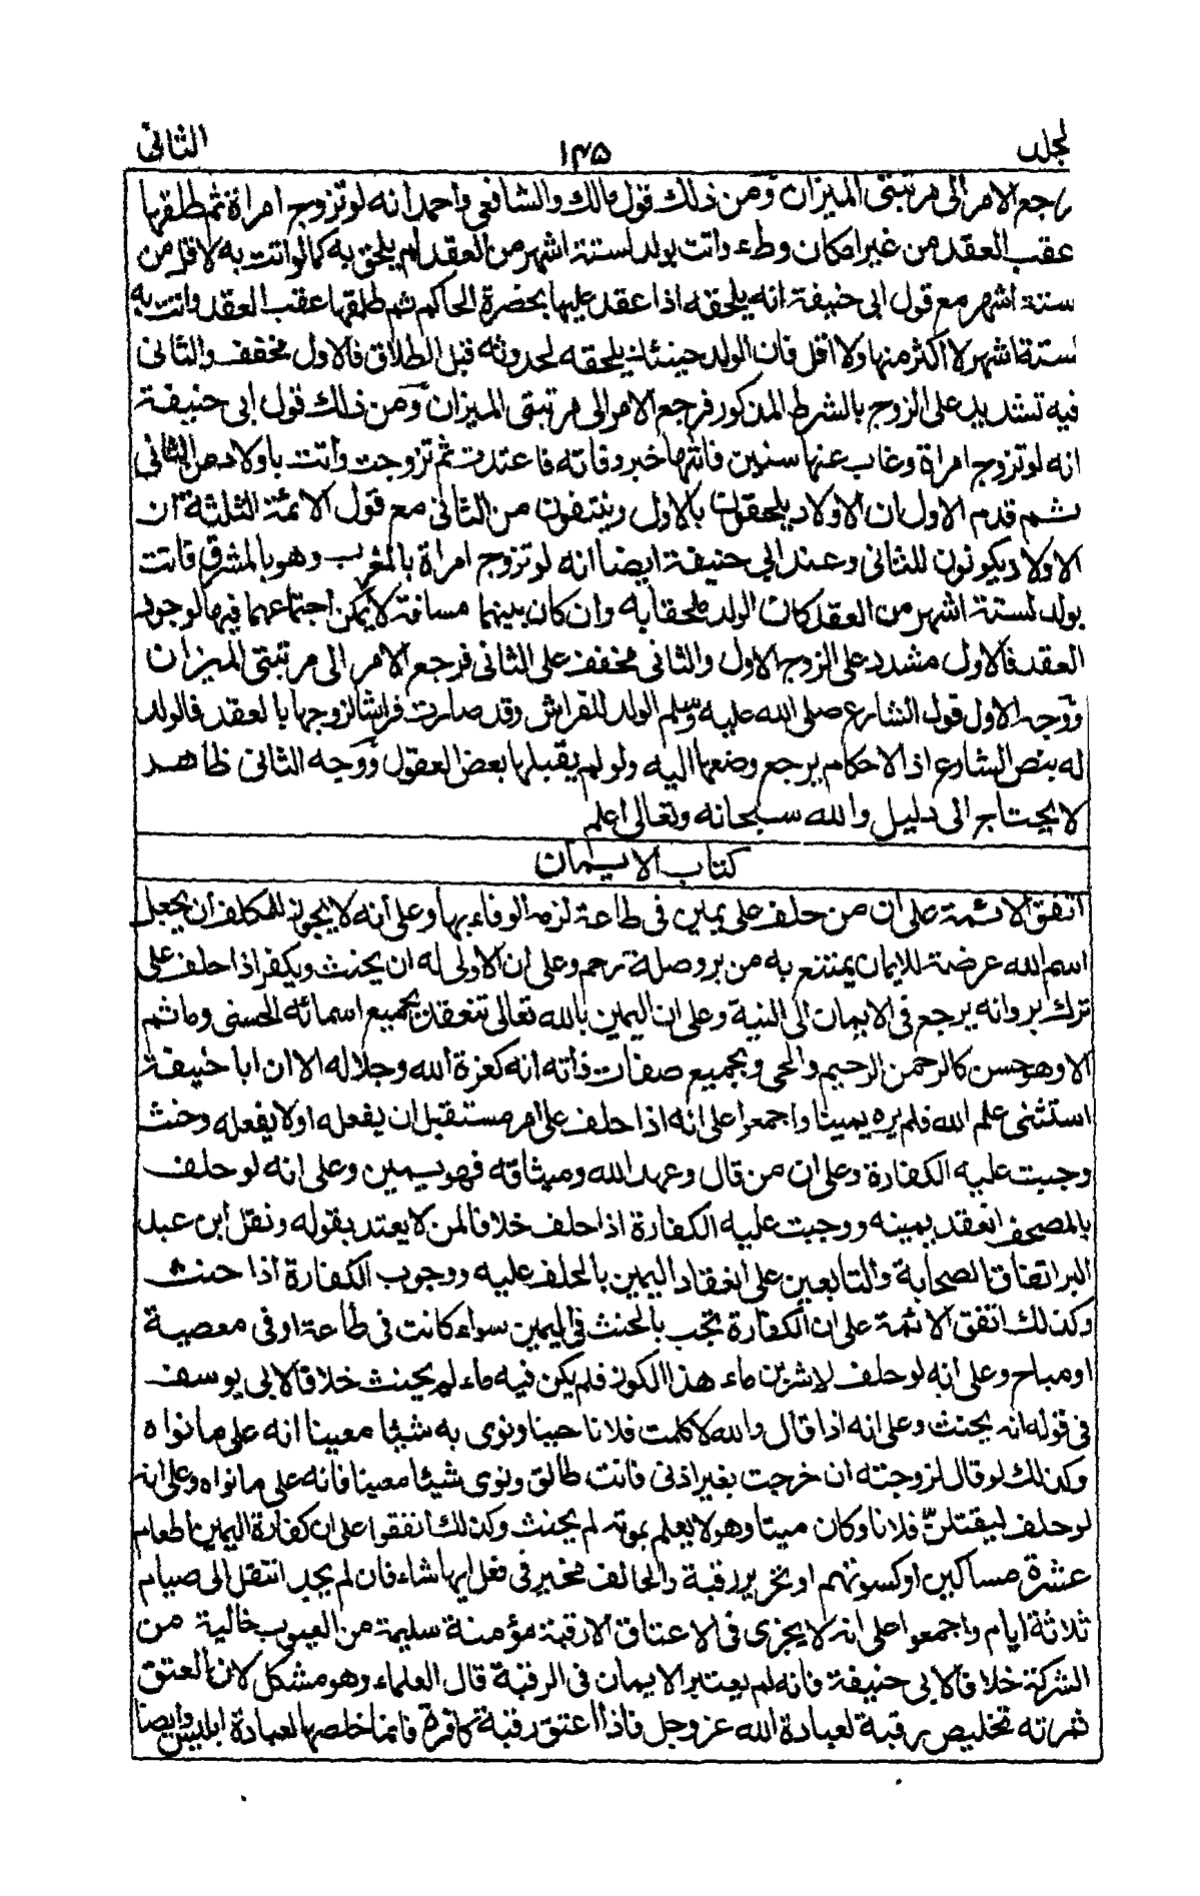 لجلد ١٣٥ الثانى
رجع الامر الى مرتبتى الميزان ومن ذلك قول مالك والشافعى واحمد انه لو تزوج امراة ثم طلقها
عقب العقد من غير امكان وطء واتت بولد لستة اشهر من العقد لم يلحق به كما لو اتت به لاقل من
ستة اشهر مع قول ابى حنيفة انه يلحقه اذا عقد عليها بحضرة الحاكم ثم طلقها عقب العقد واتت به
لستة اشهر لا اكثر منها ولا اقل فان الولد حينئذ يلحقه لحدوثه قبل الطلاق فالاول مخفف والثانى
فيه تشديد على الزوج بالشرط المذكور فرجع الامر الى مرتبتى الميزان ومن ذلك قول ابى حنيفة
انه لو تزوج امراة وغاب عنها سنين فاتتها خبر وفاته فاعتدت ثم تزوجت واتت باولاد من الثانى
ثم قدم الاول ان الاولاد يلحقون بالاول وينتفون من الثانى مع قول الائمة الثلثة ان
الاولاد يكونون للثانى وعند ابي حنيفة ايضا انه لو تزوج امراة بالمغرب وهو بالمشرق فاتت
بولد لستة اشهر من العقد كان الولد ملحقا به وان كان بينهما مسافة لا يمكن اجتماعهما فيها لوجود
العقد فالاول مشدد على الزوج الاول والثانى مخفف على الثانى فرجع الامر الى مرتبتى الميزان
ووجه الاول قول الشارع صلى الله عليه وسلم الولد للفراش وقد صارت فراشا لزوجها بالعقد فالولد
له بنص الشارع اذ الاحكام يرجع وضعها اليه ولو لم يقبلها بعض العقول ووجه الثانى ظاهر
لا يحتاج الى دليل والله سبحانه وتعالى اعلم
كتاب الايمان
اتفق الائمة على ان من حلف على يمين فى طاعة لزمه الوفاء بها وعلى انه لا يجوز للمكلف ان يجعل
اسم الله عرضة للايمان يمتنع به من بر وصلة رحم وعلى ان الاولى له ان يحنث ويكفر اذا حلف على
ترك بر وانه يرجع فى الايمان الى النية وعلى ان اليمين بالله تعالى تنعقد بجميع اسمائه الحسنى وما ثم
الا وهو حسن كالرحمن الرحيم والحى وبجميع صفات ذاته انه كعزة الله وجلاله الا ان ابا حنيفة
استثنى علم الله فلم يره يمينا واجمعوا على انه اذا حلف على امر مستقبل ان يفعله او لا يفعله وحنث
وجبت عليه الكفارة وعلى ان من قال وعهد الله وميثاقه فهو يمين وعلى انه لو حلف
بالمصحف انعقد يمينه ووجبت عليه الكفارة اذا حلف خلافا لمن لا يعتد بقوله ونقل ابن عبد
البر اتفاق الصحابة والتابعين على انعقاد اليمين بالحلف عليه ووجوب الكفارة اذا حنث
وكذلك اتفق الائمة على ان الكفارة تجب بالحنث فى اليمين سواء كانت فى طاعة او فى معصية
او مباح وعلى انه لو حلف لاشربن ماء هذا الكوز فلم يكن فيه ماء لم يحنث خلافا لابى يوسف
فى قوله انه يحنث وعلى انه اذا قال والله لا كلمت فلانا حينا ونوى به شيئا معينا انه على ما نواه
وكذلك لو قال لزوجته ان خرجت بغير اذنى فانت طالق ونوى شيئا معينا فانه على ما نواه وعلى انه
لو حلف ليقتلنّ فلانا وكان ميتا وهو لا يعلم بموته لم يحنث وكذلك اتفقوا على ان كفارة اليمين اطعام
عشرة مساكين او كسوتهم او تحرير رقبة والحالف مخير فى فعل ايها شاء فان لم يجد انتقل الى صيام
ثلاثة ايام واجمعوا على انه لا يجزى فى الاعتاق الا رقبة مؤمنة سليمة من العيوب خالية من
الشركة خلافا لابى حنيفة فانه لم يعتبر الايمان فى الرقبة قال العلماء وهو مشكل لان العتق
ثمرته تخليص رقبة لعبادة الله عز وجل فاذا اعتق رقبة كافرة فانما خلصها لعبادة ابليس وايضا